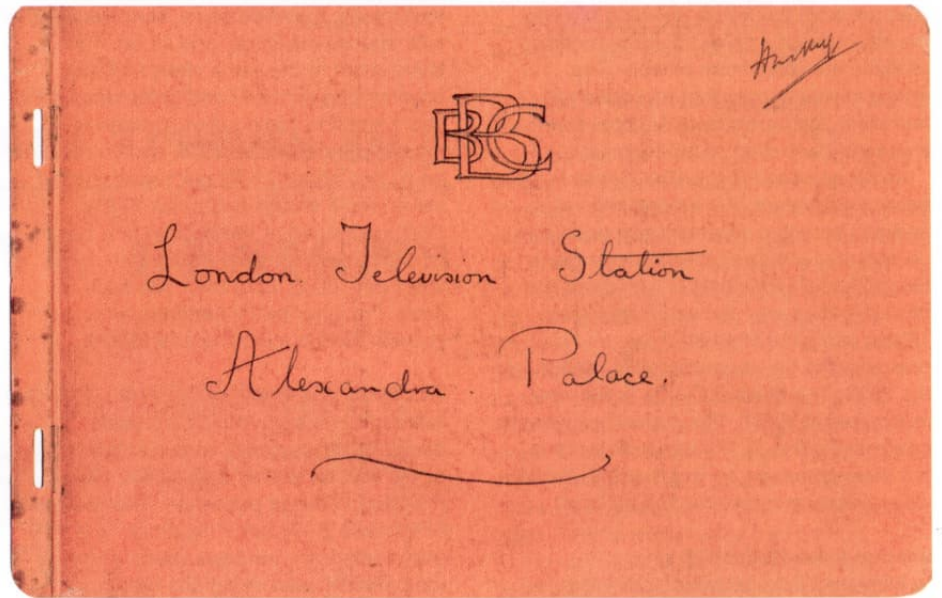 BBC
London Television Station
Alexandra Palace.